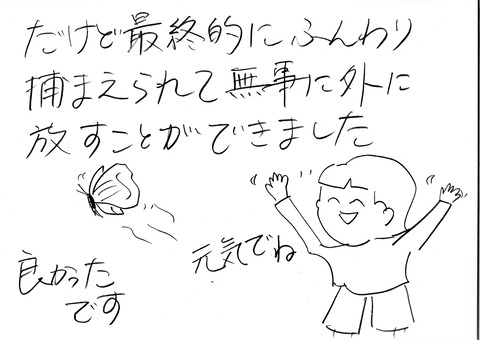 だけど最終的にふんわり
捕まえられて無事に外に
放すことができました
元気でね
良かった
です